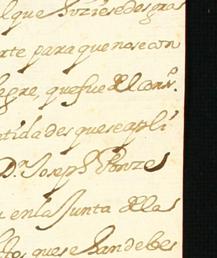 l que hiziese desgra
rte para que no se con
legre, que fue del Cons.º
ntidades que se apli
Dn Joseph Ponze
en la Junta de la
que se han de bes